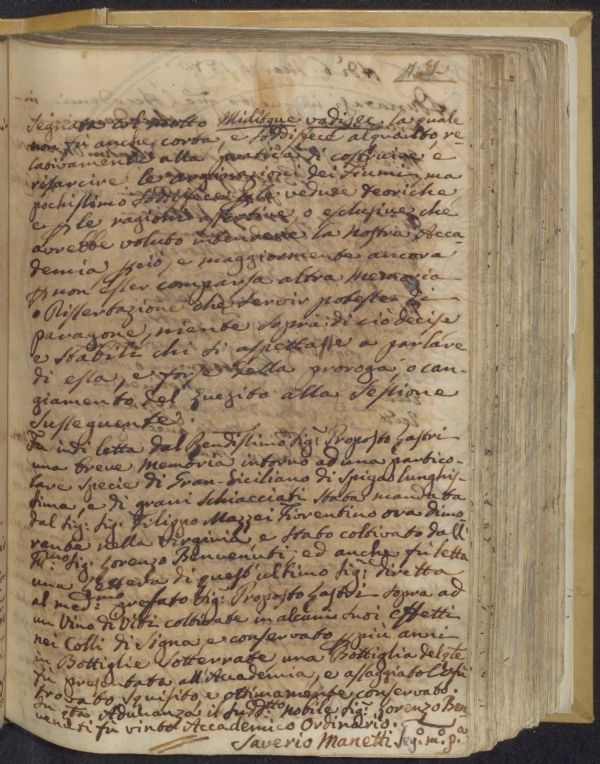 Segnata col motto Meliòque vadisec. la quale
non fu anche corta, e soddisfece alquanto re-
lativamente alla pratica di costruire, e
risarcire le arginazioni dei Fiumi, ma
pochissimo soddisfece le vedute teoriche
e le ragioni assertive, o esclusive che
avrebbe voluto intendere la nostra Acca-
demia perciò, e maggiormente ancora
p non esser comparsa altra memoria
o Dissertazione che servir potesse di
paragone, niente sopra di ciò decise
e stabilì chi si aspettasse a parlare
di essa, e forse della proroga, o can-
giamento del Quesito alla Sessione
susseguente.
Fu indi letta dal Rendissimo Sig. Proposto Lastri
una breve memoria intorno ad una partico-
lare specie di Gran-Siciliano di spiga lunghis-
sima, e di grani schiacciati stata mandata
dal Sig. Filippo Mazzei Fiorentino ora dimo
rante nella Virginia, e stato coltivato dall'
Ill.mo Sig. Lorenzo Benvenuti; ed anche fu letta
una Lettera di quest'ultimo Sig. diretta
al med.mo prefato Sig. Proposto Lastri sopra ad
un Vino di Viti coltivate in alcuni suoi Effetti
nei Colli di Signa, e conservato p più anni
in Bottiglie sotterrate una Bottiglia del qle
fu presentata all'Accademia, e assaggiato fu
trovato squisito e ottimamente conservato.
In sta Adunanza il sudd.to nobile Sig. Lorenzo Ben
venuti fu vinto Accademico Ordinario.
Saverio Manetti Seg.o m.o p.a